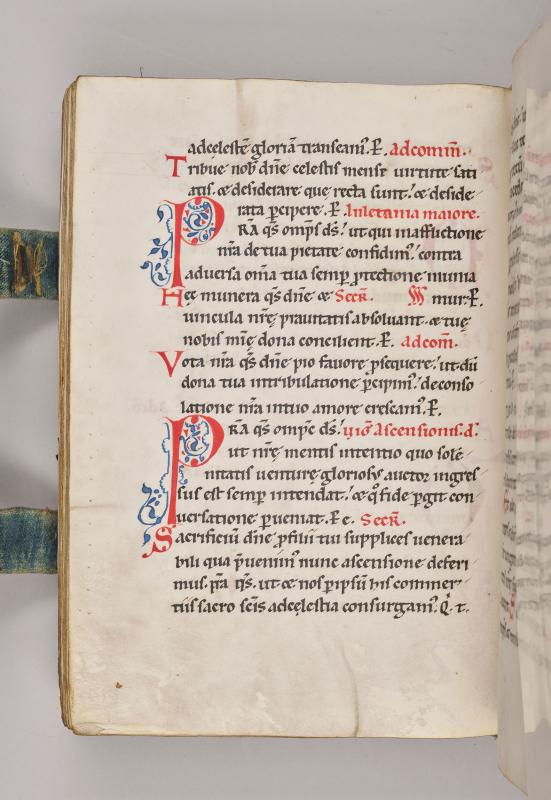 adcelestē gloriā transeamꝰ. P̄. adcom̄m.
Tribue nob̄ dn̄e celestis mense uirtute sati
atis. et desiderare que recta sunt. et deside
rata ꝑcipere. P̄. Inletania maiore.
PRA qs̄ omp̄s ds̄. ut qui inafflictione
nr̄a de tua pietate confidimꝰ. contra
aduersa om̄a tua semꝑ ꝓtectione munia
Hec munera qs̄ dn̄e et Secr̄. mur. P̄.
uincula nr̄e prauitatis absoluant. et tuę
nobis mīe dona concilient. P̄. adcom̄.
Vota nr̄a qs̄ dn̄e pio fauore ꝓsequere. ut dū
dona tua intribulatione ꝑcipimꝰ. deconso
latione nr̄a intuo amore crescamꝰ. P̄.
PRA qs̄ omp̄c ds̄. Ascensionis. d.
ut nr̄e mentis intentio quo solē
nitatis uenture gloriosꝰ auctor ingres
sus est semꝑ intendat. et qͦ fide ꝑgit con
uersatione ꝑueniat. P̄ e. Secr̄.
Sacrificiū dn̄e ꝓ filii tui supplices uenera
bili qua p̄uenimꝰ nunc ascensione deferi
mus. p̄ta qs̄. ut et nos ꝑ ipsū his commer
tiis sacro sc̄is adcęlestia consurgamꝰ. Q̇. t.